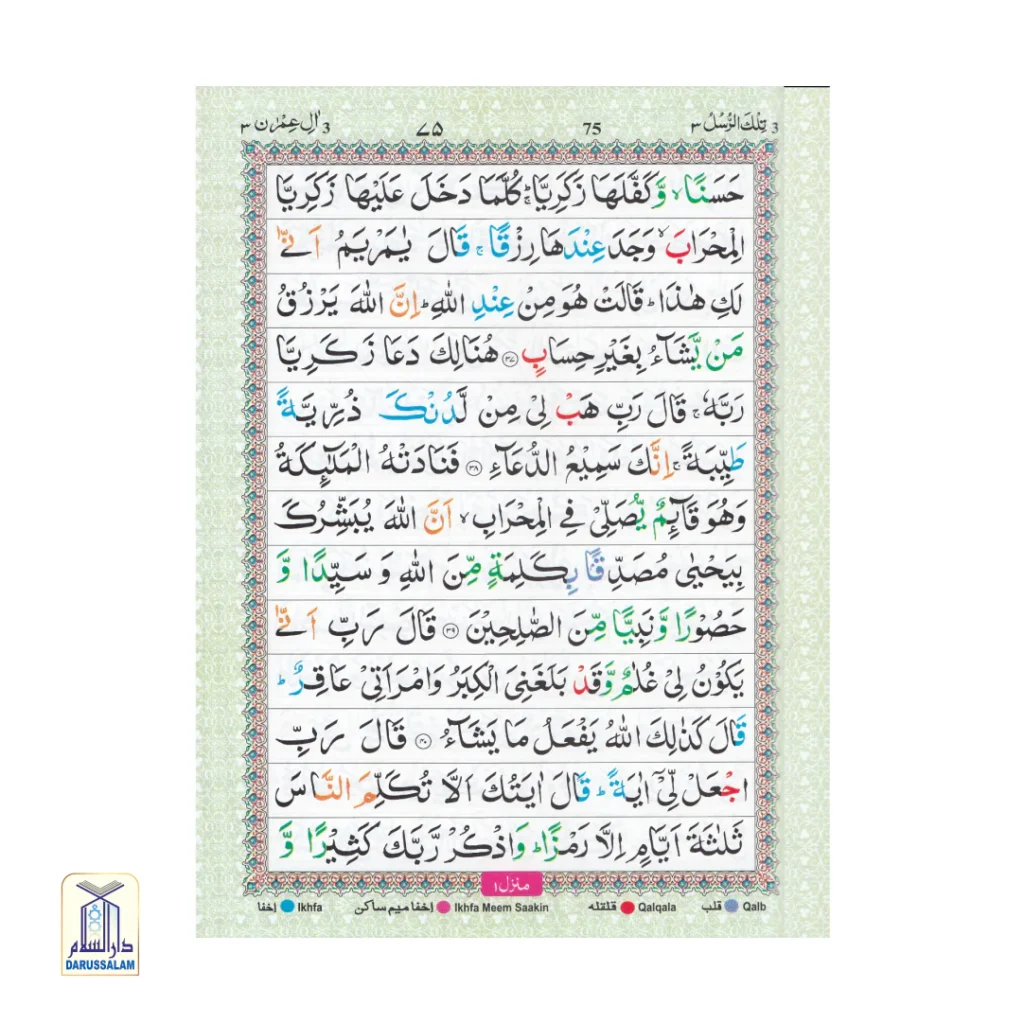 3 تِلْكَ الرُّسُلُ ٣ 75 ٧٥ 3 اٰلِ عِمْرٰن ٣
حَسَنًا ۙ وَّ كَفَّلَهَا زَكَرِيَّا ۚؕ كُلَّمَا دَخَلَ عَلَيْهَا زَكَرِيَّا
الْمِحْرَابَ ۙ وَجَدَ عِنْدَهَا رِزْقًا ۚ قَالَ يٰمَرْيَمُ اَنّٰى
لَكِ هٰذَا ؕ قَالَتْ هُوَ مِنْ عِنْدِ اللّٰهِ ؕ اِنَّ اللّٰهَ يَرْزُقُ
مَنْ يَّشَآءُ بِغَيْرِ حِسَابٍ ﴿٣٧﴾ هُنَالِكَ دَعَا زَكَرِيَّا
رَبَّهٗ ۚ قَالَ رَبِّ هَبْ لِىْ مِنْ لَّدُنْكَ ذُرِّيَّةً
طَيِّبَةً ۚ اِنَّكَ سَمِيْعُ الدُّعَآءِ ﴿٣٨﴾ فَنَادَتْهُ الْمَلٰٓئِكَةُ
وَهُوَ قَآئِمٌ يُّصَلِّىْ فِى الْمِحْرَابِ ۙ اَنَّ اللّٰهَ يُبَشِّرُكَ
بِيَحْيٰى مُصَدِّقًۢا بِكَلِمَةٍ مِّنَ اللّٰهِ وَ سَيِّدًا وَّ
حَصُوْرًا وَّنَبِيًّا مِّنَ الصّٰلِحِيْنَ ﴿٣٩﴾ قَالَ رَبِّ اَنّٰى
يَكُوْنُ لِىْ غُلٰمٌ وَّقَدْ بَلَغَنِىَ الْكِبَرُ وَامْرَاَتِىْ عَاقِرٌ ؕ
قَالَ كَذٰلِكَ اللّٰهُ يَفْعَلُ مَا يَشَآءُ ﴿٤٠﴾ قَالَ رَبِّ
اجْعَلْ لِّىْٓ اٰيَةً ؕ قَالَ اٰيَتُكَ اَلَّا تُكَلِّمَ النَّاسَ
ثَلٰثَةَ اَيَّامٍ اِلَّا رَمْزًا ؕ وَاذْكُرْ رَّبَّكَ كَثِيْرًا وَّ
منزل ١
إخفا Ikhfa إخفا میم ساکن Ikhfa Meem Saakin قلقله Qalqala قلب Qalb
دار السلام
DARUSSALAM